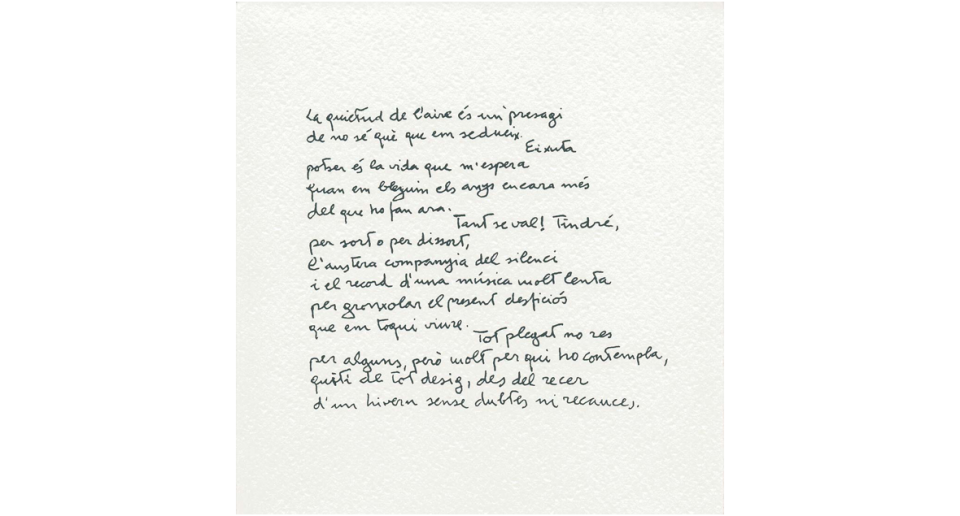 La quietud de l'aire és un presagi
de no sé què que em sedueix.
Eixuta
potser és la vida que m'espera
quan em bleguin els anys encara més
del que ho fan ara.
Tant se val! Tindré,
per sort o per dissort,
l'austera companyia del silenci
i el record d'una música molt lenta
per gronxolar el present desficiós
que em toqui viure.
Tot plegat no res
per alguns, però molt per qui ho contempla,
quiti de tot desig, des del recer
d'un hivern sense dubtes ni recances.